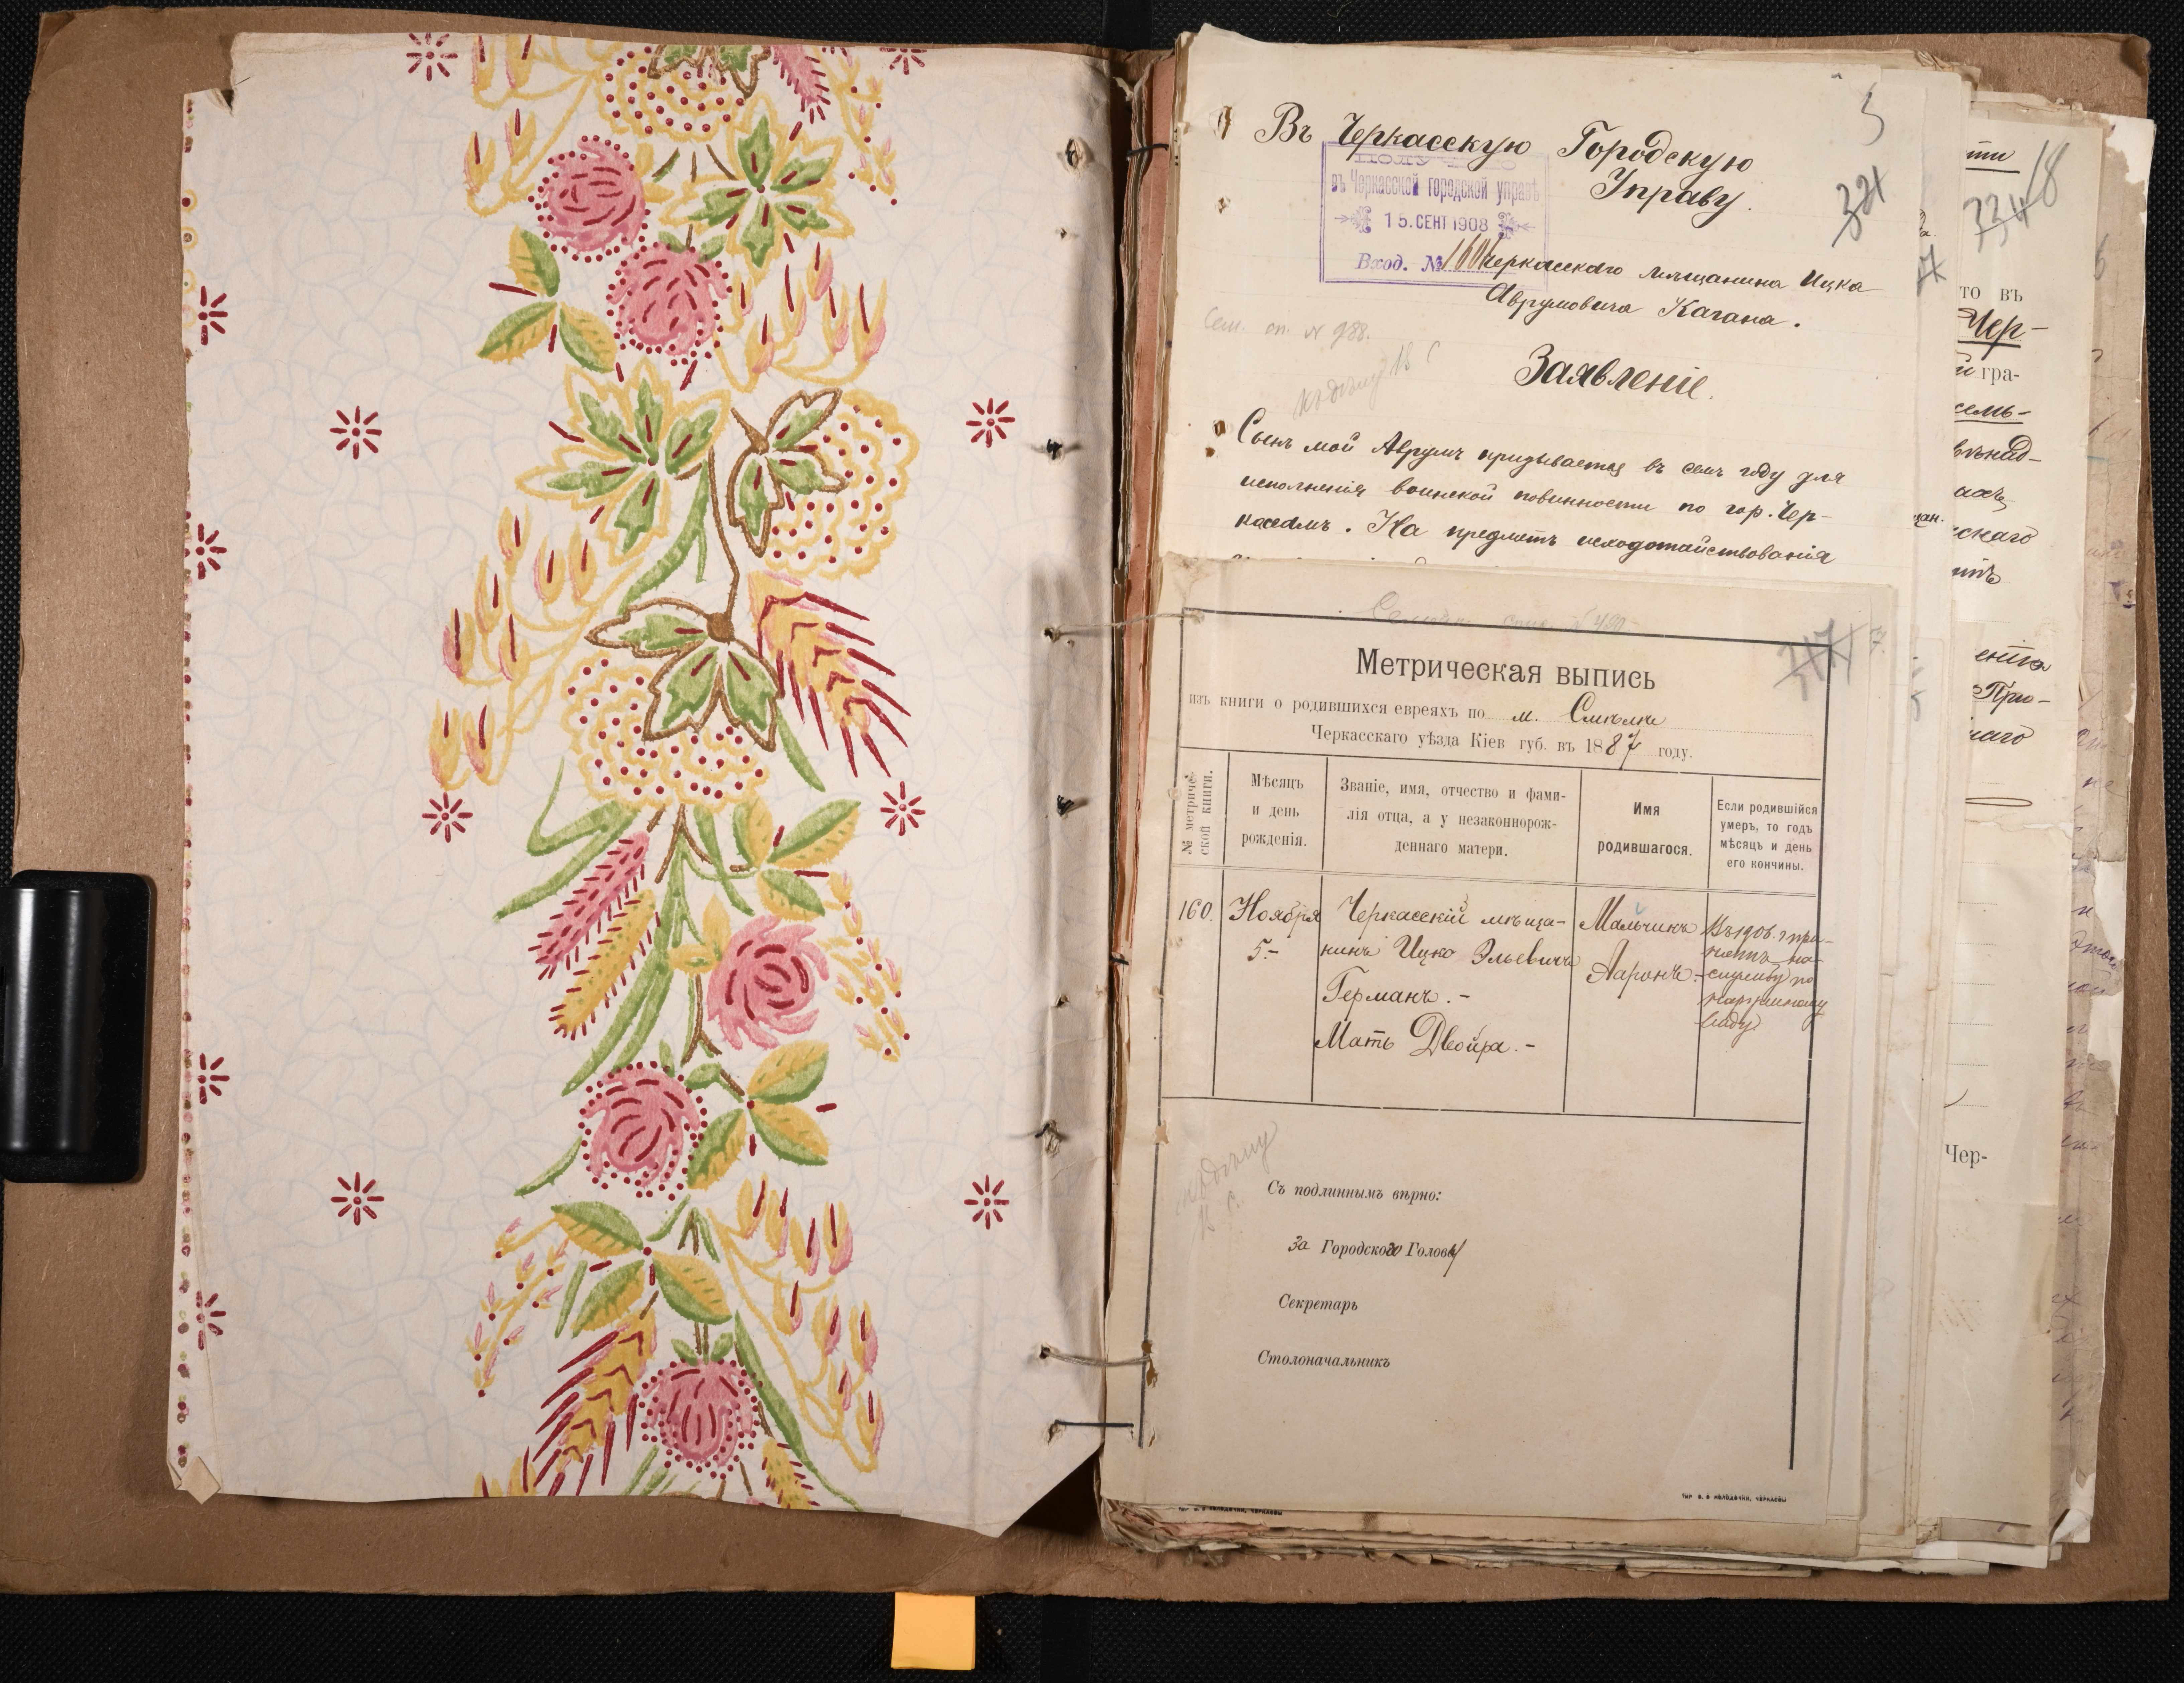 Въ Черкасскую Городскую
Управу.
въ Черкасской городской управѣ
15. СЕНТ 1908
Вход. №
Черкасскаго мѣщанина Ицка
Аврумовича Кагана.
Сем. сп. № 988.
Заявленіе.
Сынъ мой Аврумъ призывается въ семъ году для
исполненія воинской повинности по гор. Чер-
кассамъ. На предметъ исходотайствованія
Метрическая выпись
изъ книги о родившихся евреяхъ по м. Смѣлѣ
Черкасскаго уѣзда Кіев губ. въ 1887 году.
№ метриче-
ской книги.
Мѣсяцъ
и день
рожденія.
Званіе, имя, отчество и фами-
лія отца, а у незаконнорож-
деннаго матери.
Имя
родившагося.
Если родившійся
умеръ, то годъ
мѣсяцъ и день
его кончины.
160.
Ноября
5.-
Черкасскій мѣща-
нинъ Ицко Эльевичъ
Германъ.-
Мать Двойра.-
Мальчикъ
Ааронъ.-
наружному
виду
Съ подлиннымъ вѣрно:
За Городского Голову
Секретарь
Столоначальникъ
334
18
то въ
Чер-
гра-
семь-
скаго
Чер-